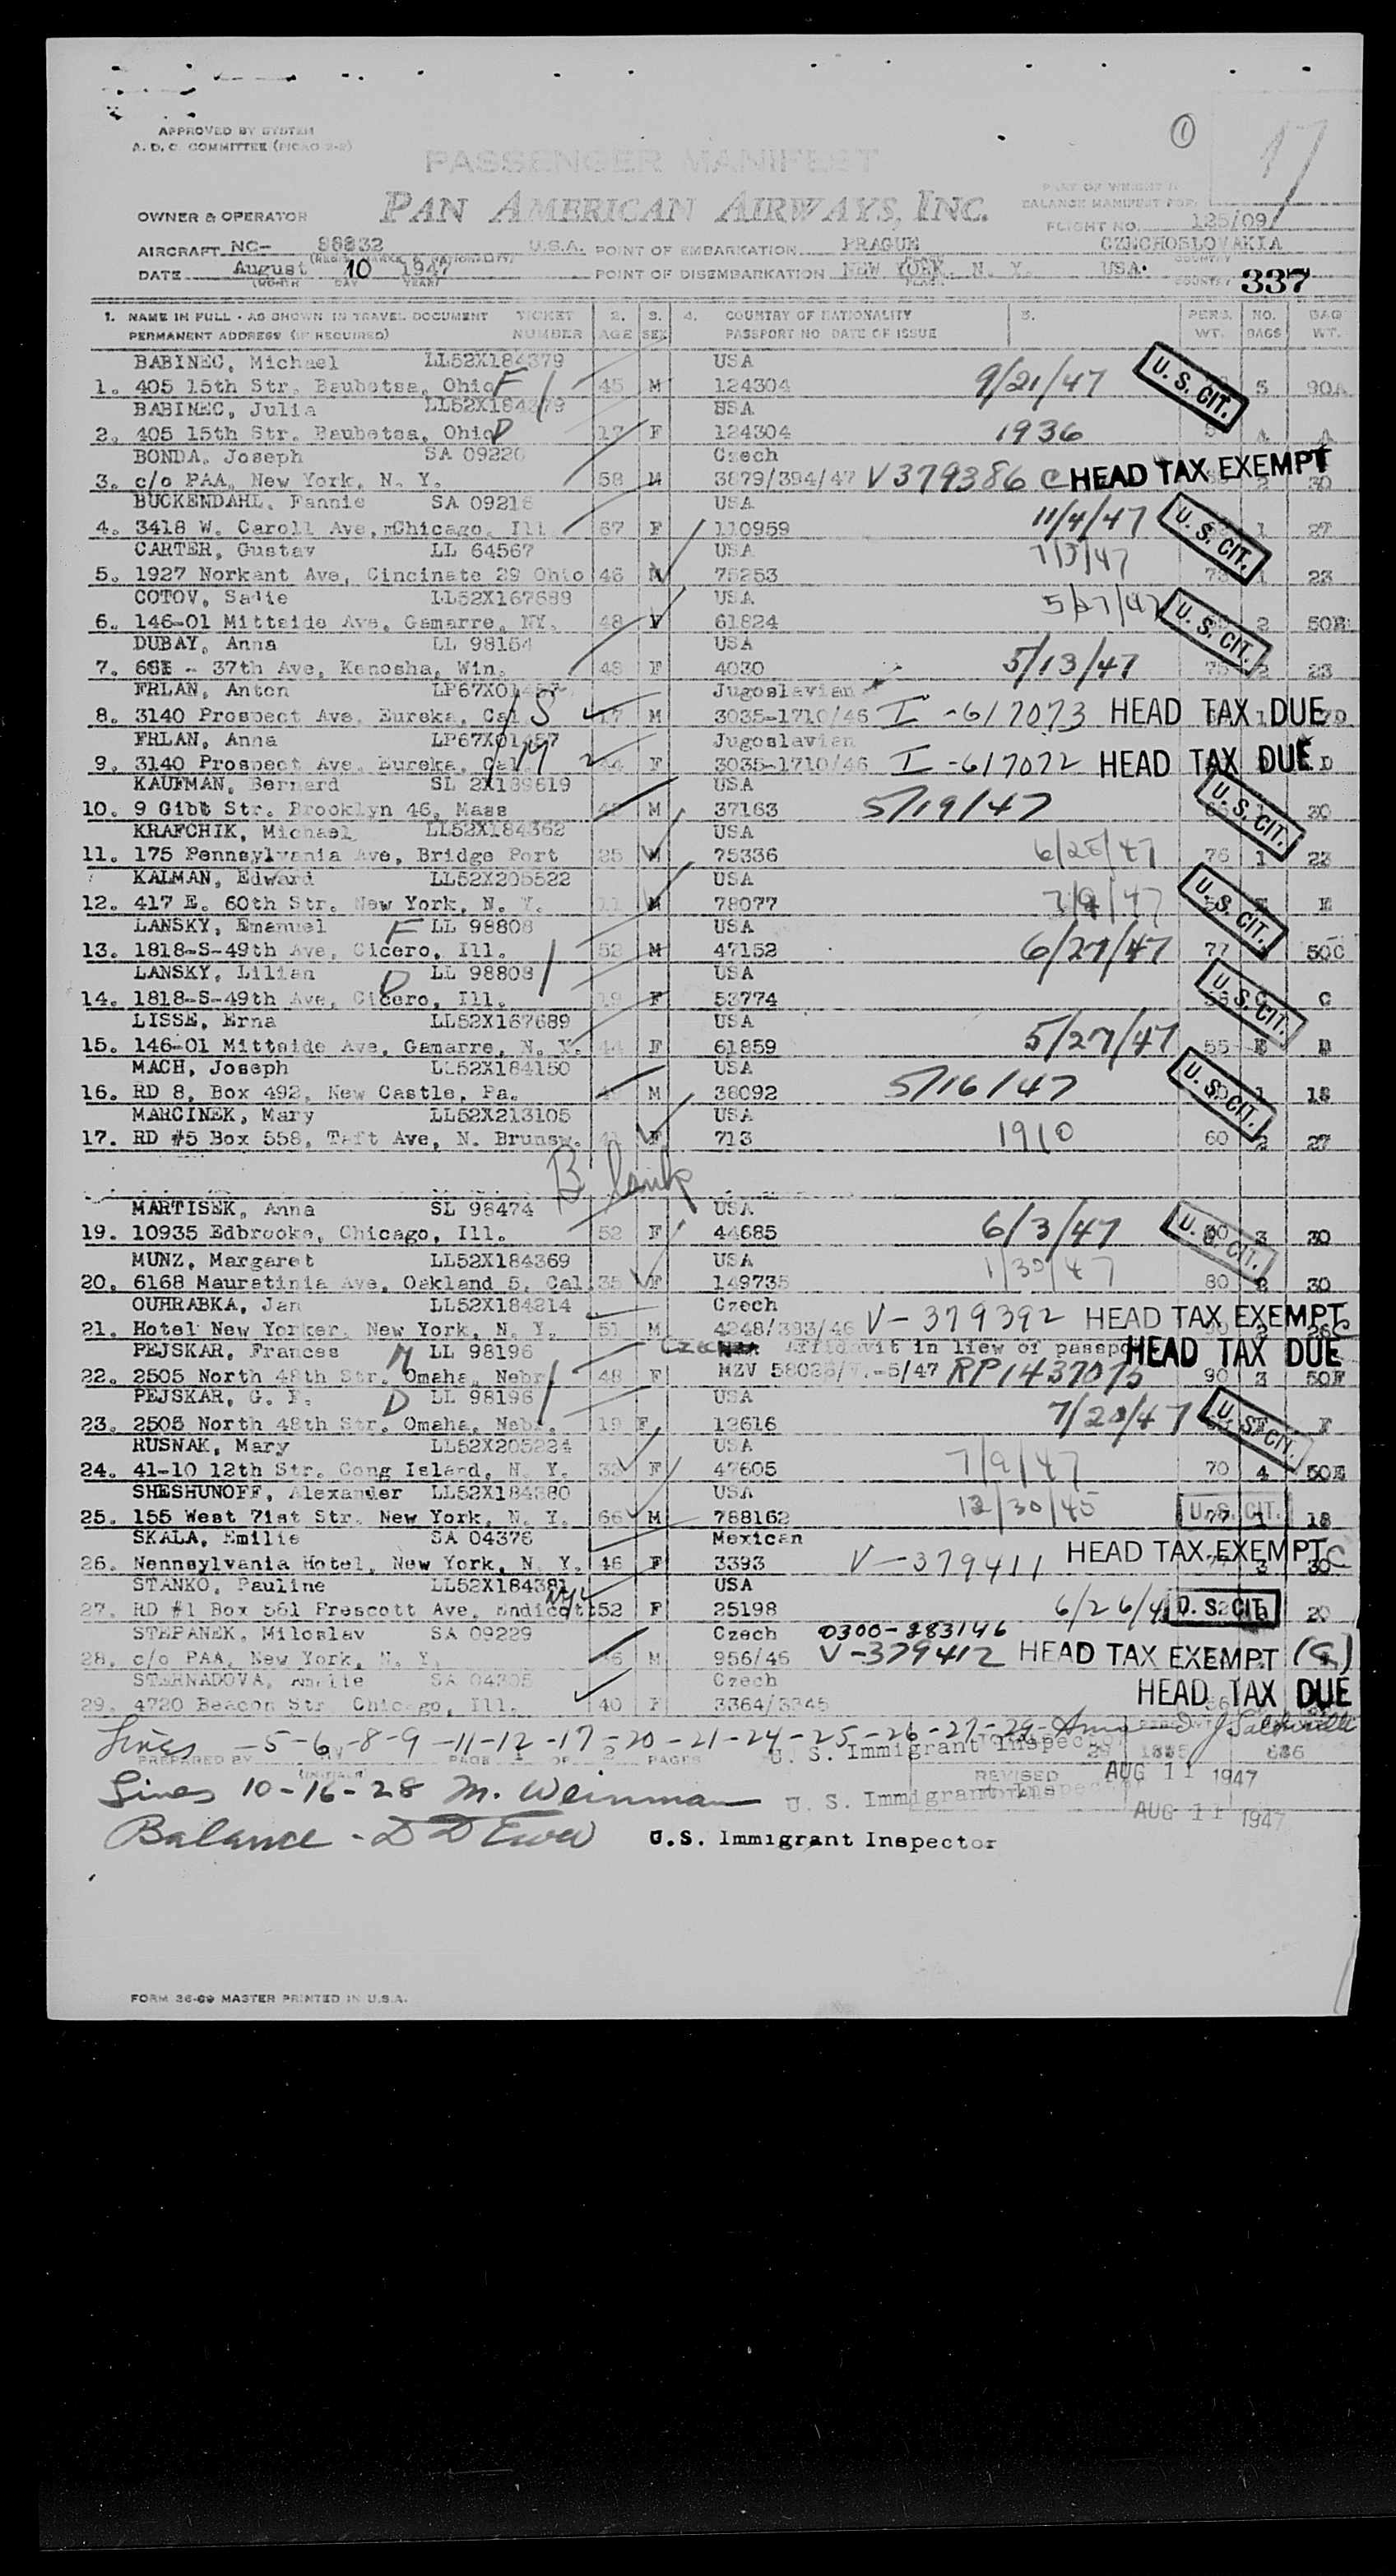 APPROVED BY SYSTEM
A. D. C. COMMITTEE
1
17
PASSENGER MANIFEST
PAN AMERICAN AIRWAYS, INC.
OWNER & OPERATOR
FLIGHT NO. 125/09/
AIRCRAFT NC- 88832 U.S.A. POINT OF EMBARKATION PRAGUE CZECHOSLOVAKIA
DATE August 10 1947 POINT OF DISEMBARKATION NEW YORK, N. Y. USA. 337
1. NAME IN FULL - AS SHOWN IN TRAVEL DOCUMENT TICKET 2. 3. 4. COUNTRY OF NATIONALITY 5. PERS. NO. BAG
PERMANENT ADDRESS (IF REQUIRED) NUMBER AGE SEX PASSPORT NO DATE OF ISSUE WT. BAGS WT.
BABINEC, Michael LL52X184379 USA
1. 405 15th Str. Baubetsa, Ohio F 45 M 124304 9/21/47 U. S. CIT. 5 90A
BABINEC, Julia LL52X184379 USA
2. 405 15th Str. Baubetsa, Ohio D 17 F 124304 1936 A A
BONDA, Joseph SA 09220 Czech
3. c/o PAA, New York, N. Y. 58 M 3879/394/47 V379386 C HEAD TAX EXEMPT 2 30
BUCKENDAHL, Fannie SA 09216 USA
4. 3418 W. Caroll Ave, Chicago, Ill 67 F 110959 11/4/47 U. S. CIT. 1 27
CARTER, Gustav LL 64567 USA
5. 1927 Norkant Ave, Cincinate 29 Ohio 46 M 75253 7/3/47 23
COTOV, Sadie LL52X167689 USA
6. 146-01 Mittside Ave, Gamarre, NY. 48 F 61824 5/27/47 U. S. CIT. 2 50E
DUBAY, Anna LL 98154 USA
7. - 37th Ave, Kenosha, Win. 48 F 4030 5/13/47 2 23
FRLAN, Anton LP67X01457 Jugoslavian
8. 3140 Prospect Ave, Eureka, Cal S 17 M 3035-1710/46 I-617073 HEAD TAX DUE D
FRLAN, Anna LP67X01457 Jugoslavian
9. 3140 Prospect Ave, Eureka, Cal M 44 F 3035-1710/46 I-617072 HEAD TAX DUE D
KAUFMAN, Bernard SL 2X189619 USA
10. 9 Gibt Str. Brooklyn 46, Mass M 37163 5/19/47 U. S. CIT. 20
KRAFCHIK, Michael LL52X184362 USA
11. 175 Pennsylvania Ave, Bridge Port 25 M 75336 6/25/47 76 1 23
KALMAN, Edward LL52X205522 USA
12. 417 E. 60th Str. New York, N. Y. 11 M 78077 7/9/47 U. S. CIT. E
LANSKY, Emanuel F LL 98808 USA
13. 1818-S-49th Ave, Cicero, Ill. 52 M 47152 6/27/47 77 50C
LANSKY, Lilian D LL 98808 USA
14. 1818-S-49th Ave, Cicero, Ill. 19 F 53774 U. S. CIT. C
LISSE, Erna LL52X167689 USA
15. 146-01 Mittside Ave, Gamarre, N. Y. 44 F 61859 5/27/47 55 E
MACH, Joseph LL52X184150 USA
16. RD 8, Box 492, New Castle, Pa. M 38092 5/16/47 U. S. CIT. 1 18
MARCINEK, Mary LL52X213105 USA
17. RD #5 Box 558, Taft Ave, N. Brunsw. 41 F 713 1910 60 2 27
Blank
MARTISEK, Anna SL 98474 USA
19. 10935 Edbrooke, Chicago, Ill. 52 F 44685 6/3/47 U. S. CIT. 3 30
MUNZ, Margaret LL52X184369 USA
20. 6168 Mauretinia Ave, Oakland 5, Cal. 35 F 149735 1/30/47 80 2 30
OUHRABKA, Jan LL52X184214 Czech
21. Hotel New Yorker, New York, N. Y. 51 M 4248/383/46 V-379392 HEAD TAX EXEMPT C
PEJSKAR, Frances M LL 98196 Affidavit in liew of passpo HEAD TAX DUE
22. 2505 North 48th Str. Omaha, Nebr 48 F MZV -5/47 RP1437015 90 3 50F
PEJSKAR, G. F. D LL 98196 USA
23. 2505 North 48th Str. Omaha, Nebr. 19 F 12616 7/20/47 U. S. CIT. F
RUSNAK, Mary LL52X205224 USA
24. 41-10 12th Str. Cong Island, N. Y. F 47605 7/9/47 70 4 50E
SHESHUNOFF, Alexander LL52X184380 USA
25. 155 West 71st Str. New York, N. Y. 66 M 788162 12/30/45 U. S. CIT. 77 1 18
SKALA, Emilie SA 04376 Mexican
26. Nennsylvania Hotel, New York, N. Y. 46 F 3393 V-379411 HEAD TAX EXEMPT C 3 30
STANKO, Pauline LL52X184381 USA
27. RD #1 Box 561 Prescott Ave, Endicott NY 52 F 25198 6/26/4 U. S. CIT. 20
STEPANEK, Miloslav SA 09229 Czech 0300-283146
28. c/o PAA, New York, N. Y. M 956/46 V-379412 HEAD TAX EXEMPT (G)
STERNADOVA, Amelie SA 04305 Czech
29. 4720 Beacon Str. Chicago, Ill. 40 F 3364/3345 HEAD TAX DUE
Lines -5-6-8-9-11-12-17-20-21-24-25-26-27-29-
PREPARED BY PAGE 1 OF 2 PAGES U. S. Immigrant Inspector 686
REVISED AUG 11 1947
Lines 10-16-28 M. Weinman U. S. Immigrant Inspector
AUG 11 1947
Balance - U.S. Immigrant Inspector
FORM 36-69 MASTER PRINTED IN U.S.A.